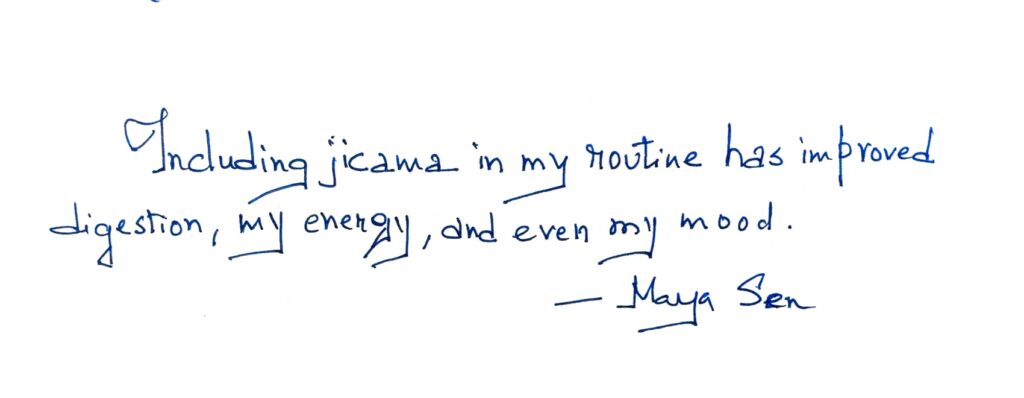 Including jicama in my routine has improved
digestion, my energy, and even my mood.
— Maya Sen